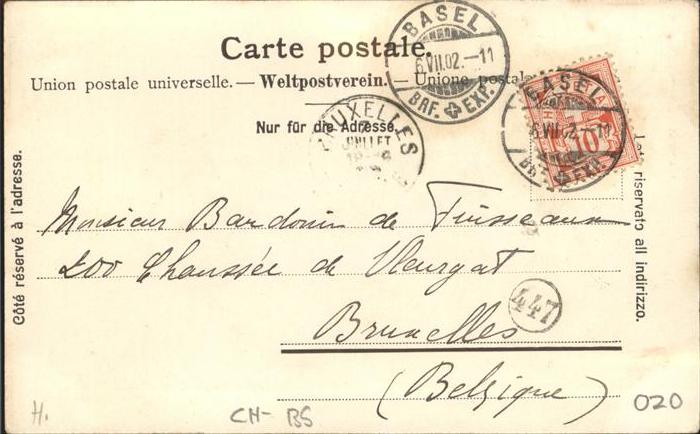 Carte postale.
Union postale universelle.— Weltpostverein.— Unione postale
Nur für die Adresse.
Côté réservé à l'adresse.
riservato all indirizzo.
BASEL
6.VII.02.—11
BRF. EXP.
BASEL
6.VII.02.—11
BRF. EXP.
10
BRUXELLES
JUILLET
Monsieur Bardouin de Fuisseaux
200 Chaussée de Vleurgat
Bruxelles
(Belgique)
447
H.
CH- BS
020